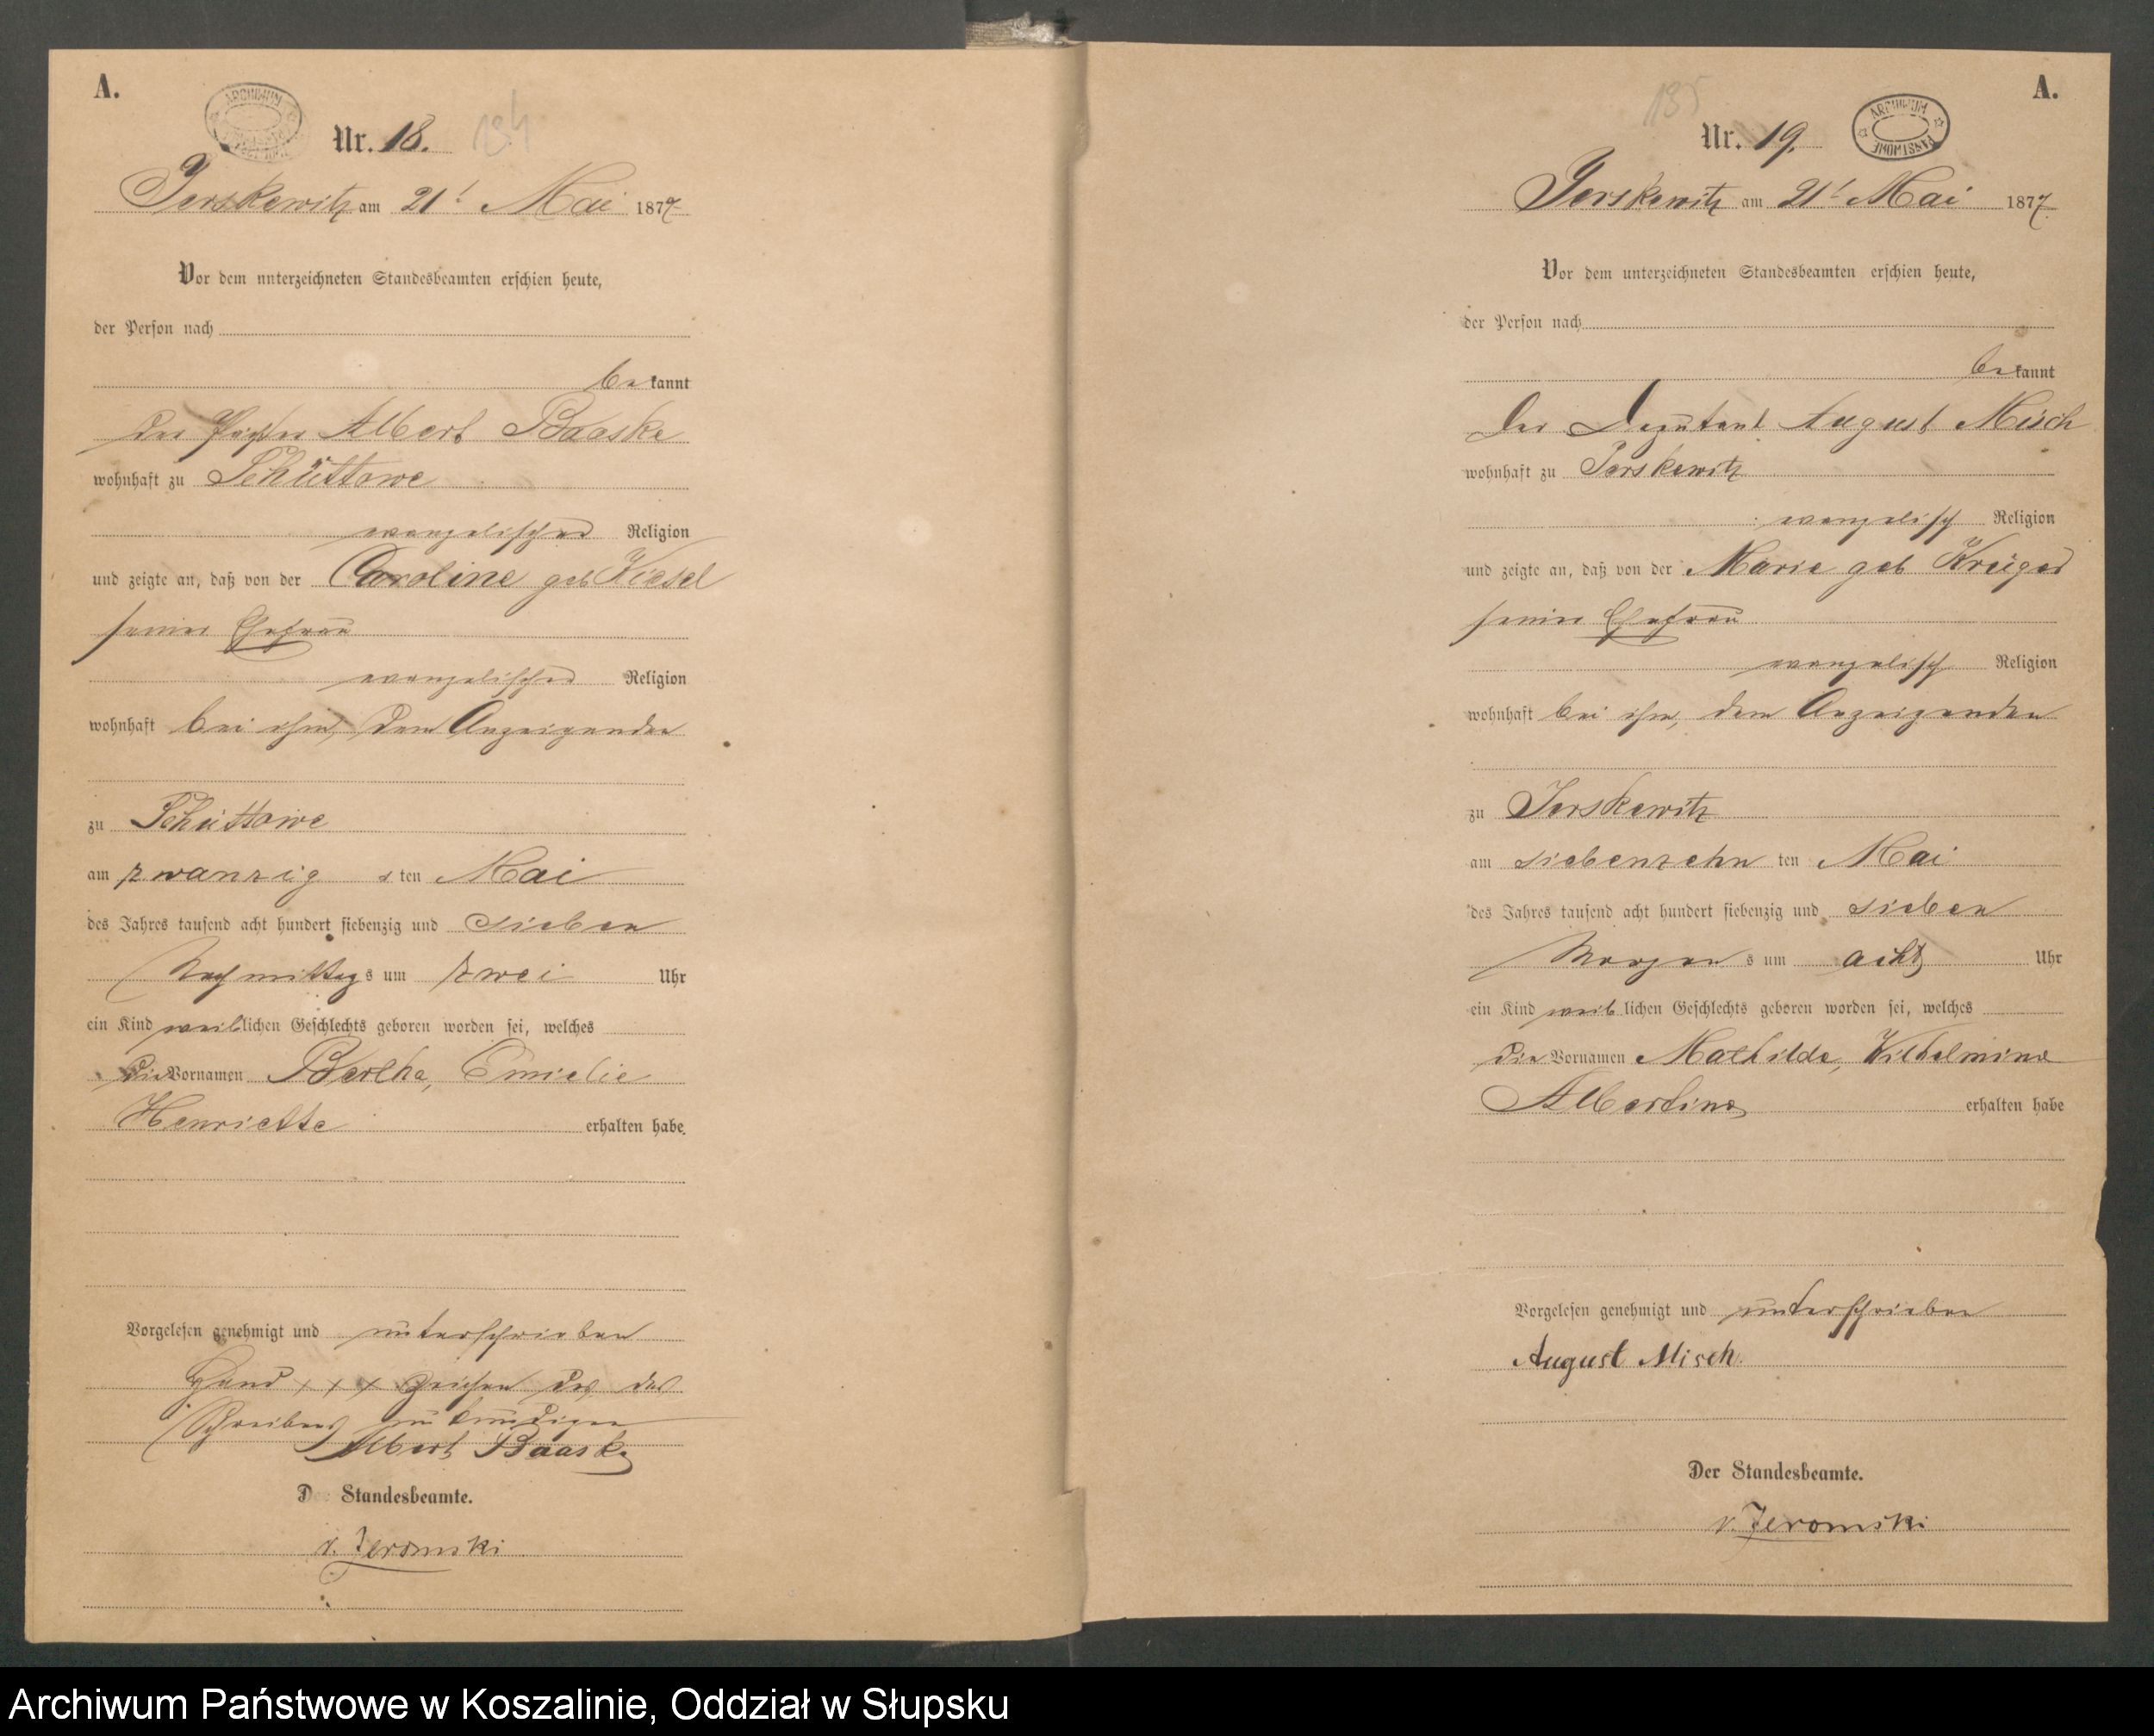 A.
ARCHIWUM
Nr. 18. 134
Jerskewitz am 21t Mai 1877
Vor dem unterzeichneten Standesbeamten erschien heute,
der Person nach
bekannt
der Pächter Albert Baaske
wohnhaft zu Schüttowe
evangelischer Religion
und zeigte an, daß von der Caroline geb Kiesel
seiner Ehefrau
evangelischer Religion
wohnhaft bei ihm, dem Anzeigenden
zu Schüttowe
am zwanzig sten Mai
des Jahres tausend acht hundert siebenzig und sieben
Nachmittags um zwei Uhr
ein Kind weiblichen Geschlechts geboren worden sei, welches
die Vornamen Bertha, Emielie
Henriette erhalten habe.
Vorgelesen genehmigt und unterschrieben
Hand x x x Zeichen des des
Schreibens unkundigen
Albert Baaske
D Standesbeamte.
v. Jeromski
A.
135
ARCHIWUM PAŃSTWOWE
Nr. 19.
Jerskewitz am 21t Mai 1877.
Vor dem unterzeichneten Standesbeamten erschien heute,
der Person nach
bekannt
Der Deputant August Misch
wohnhaft zu Jerskewitz
evangelisch Religion
und zeigte an, daß von der Marie geb Krüger
seiner Ehefrau
evangelisch Religion
wohnhaft bei ihm, dem Anzeigenden
zu Jerskewitz
am siebenzehn ten Mai
des Jahres tausend acht hundert siebenzig und sieben
Morgens um acht Uhr
ein Kind weiblichen Geschlechts geboren worden sei, welches
die Vornamen Mathilde, Wilhelmine
Albertine erhalten habe
Vorgelesen genehmigt und unterschrieben
August Misch.
Der Standesbeamte.
v. Jeromski
Archiwum Państwowe w Koszalinie, Oddział w Słupsku